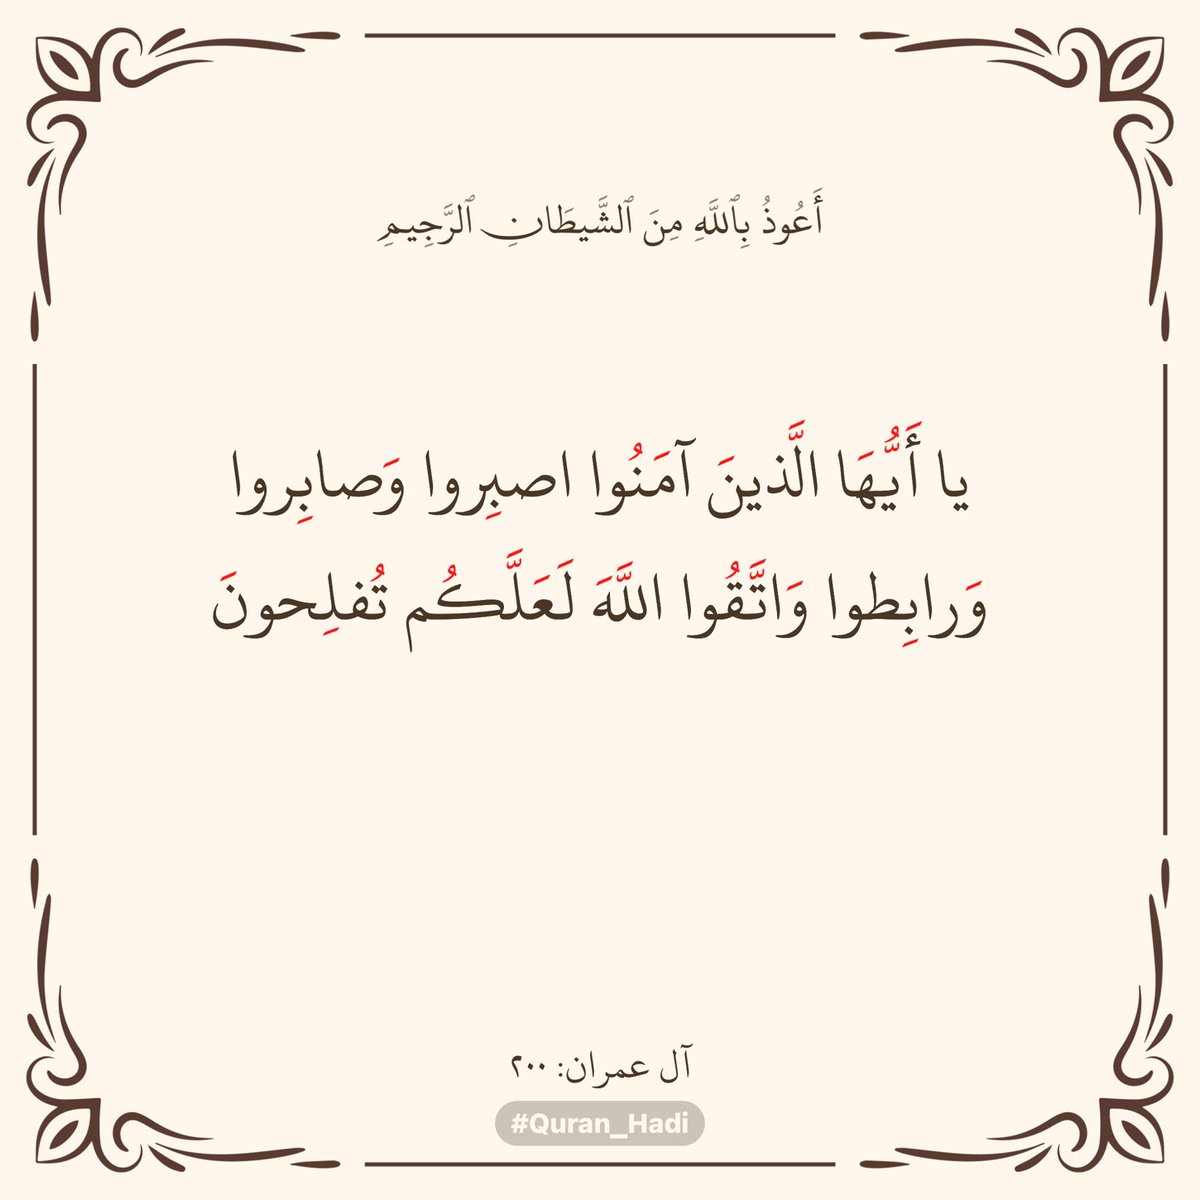 أَعُوذُ بِٱللَّهِ مِنَ ٱلشَّيطَانِ ٱلرَّجِيمِ
يا أَيُّهَا الَّذينَ آمَنُوا اصبِروا وَصابِروا
وَرابِطوا وَاتَّقُوا اللَّهَ لَعَلَّكُم تُفلِحونَ
آل عمران: ٢٠٠
#Quran_Hadi